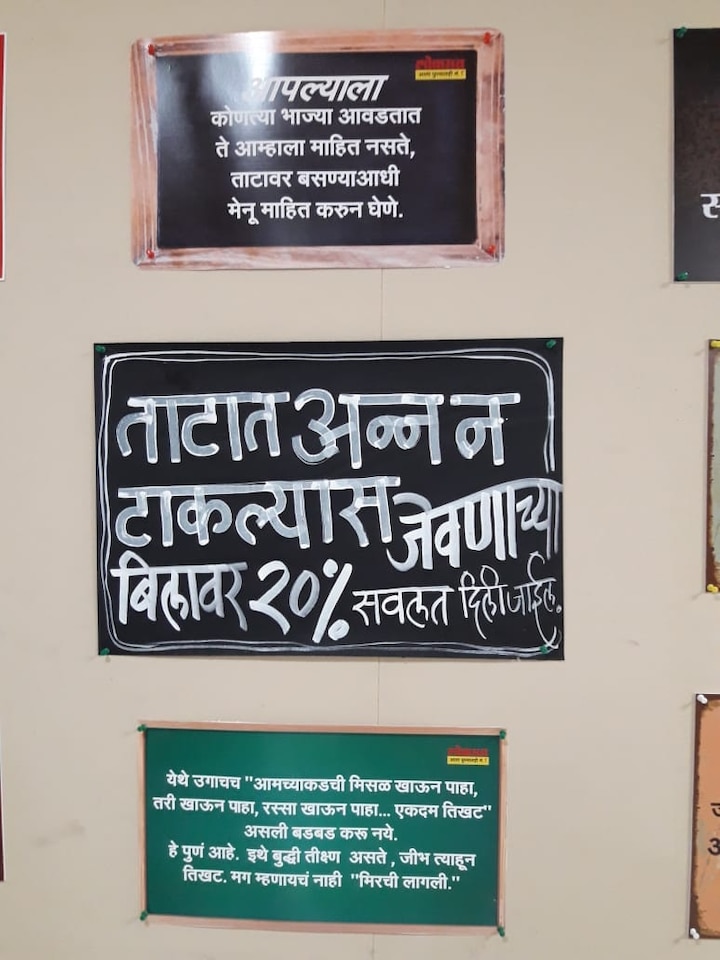 लोकमत
आपल्याला
कोणत्या भाज्या आवडतात
ते आम्हाला माहित नसते,
ताटावर बसण्याआधी
मेनू माहित करुन घेणे.
ताटात अन्न न
टाकल्यास जेवणाच्या
बिलावर २०% सवलत दिली जाईल.
लोकमत
येथे उगाचच "आमच्याकडची मिसळ खाऊन पाहा,
तरी खाऊन पाहा, रस्सा खाऊन पाहा... एकदम तिखट"
असली बडबड करू नये.
हे पुणं आहे. इथे बुद्धी तीक्ष्ण असते , जीभ त्याहून
तिखट. मग म्हणायचं नाही "मिरची लागली."